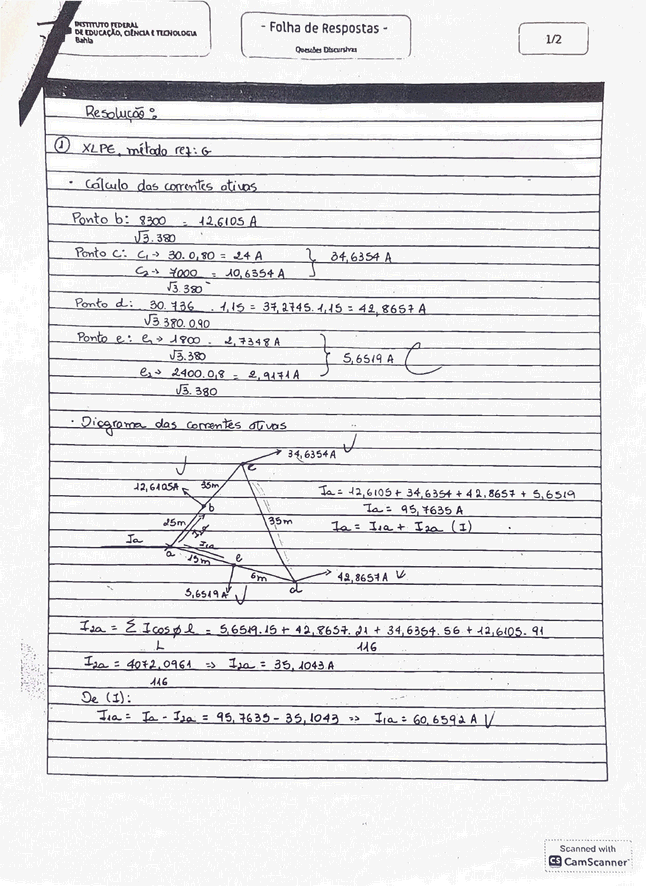 INSTITUTO FEDERAL
DE EDUCAÇÃO, CIÊNCIA E TECNOLOGIA
Bahia
- Folha de Respostas -
Questões Discursivas
1/2
Resolução:
① XLPE, método ref: G
• Cálculo das correntes ativas
Ponto b: 8300 = 12,6105 A
√3.380
Ponto c: C₁ → 30.0,80 = 24 A } 34,6354 A
C₂ → 7000 = 10,6354 A
√3.380
Ponto d: 30.736 . 1,15 = 37,2745.1,15 = 42,8657 A
√3 380.0,90
Ponto e: e₁ → 1800 = 2,7348 A
√3.380
} 5,6519 A
e₂ → 2400.0,8 = 2,9171 A
√3.380
• Diagrama das correntes ativas
34,6354 A
c
12,6105 A
35m
b
25m
35m
Ia
a
I1a
15m
e
6m
d
42,8657 A
5,6519 A
Ia = 12,6105 + 34,6354 + 42,8657 + 5,6519
Ia = 95,7635 A
Ia = I1a + I2a (I)
I2a = Σ I cosø l = 5,6519.15 + 42,8657.21 + 34,6354.56 + 12,6105.91
L 116
I2a = 4072,0961 => I2a = 35,1043 A
116
De (I):
I1a = Ia - I2a = 95,7635 - 35,1043 => I1a = 60,6592 A
Scanned with
CS CamScanner